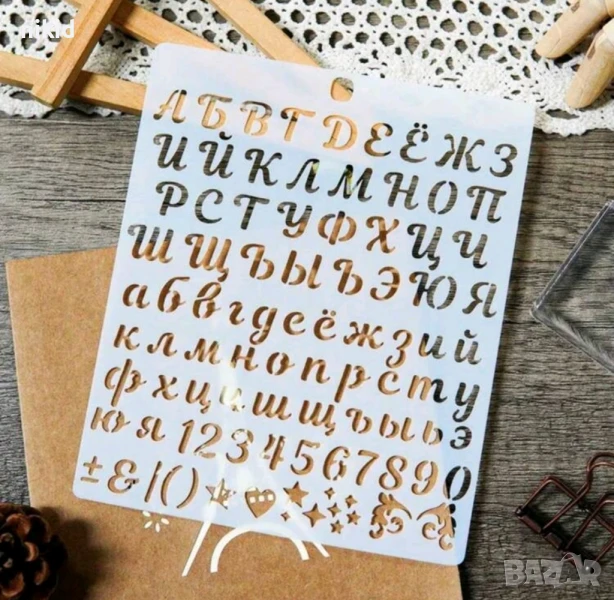 nikid
АБВГДЕЁЖЗ
ИЙКЛМНОП
РСТУФХЦЧ
ШЩЪЫЬЭЮЯ
абвгдеёжзий
клмнопрсту
фхцчшщъыьэ
юя1234567890
±&|()
BAZAR